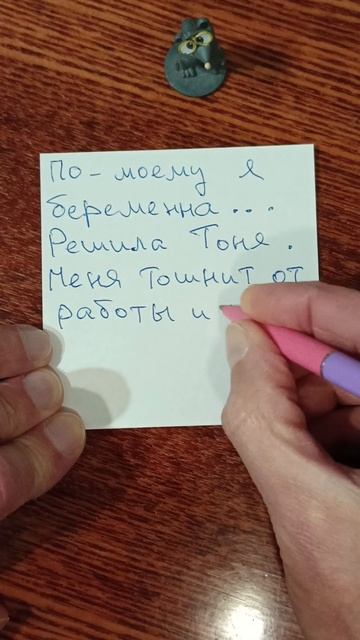 По-моему я
беременна...
Решила Тоне.
Меня тошнит от
работы и